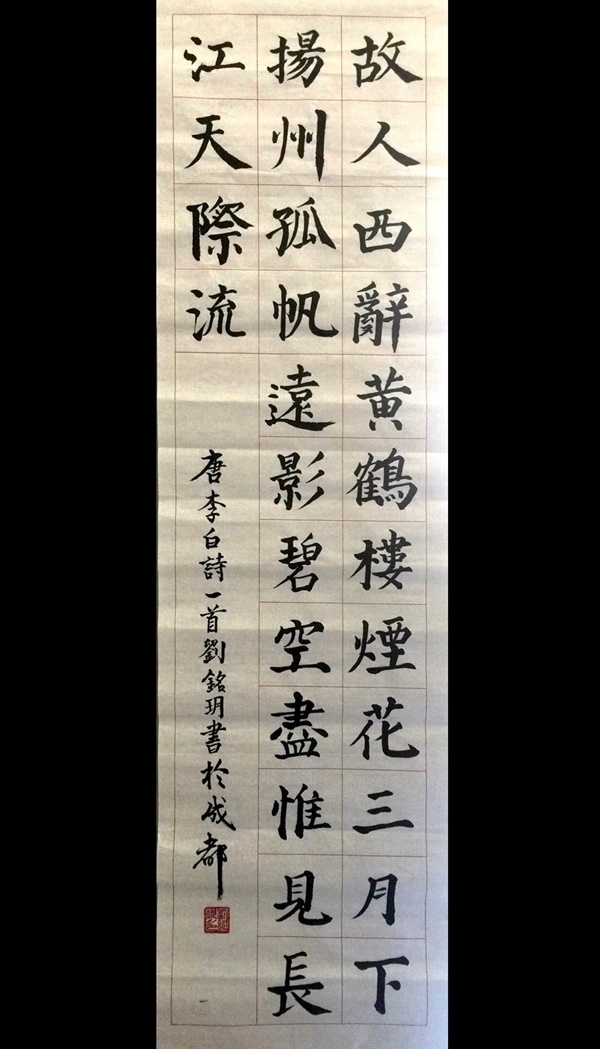 故人西辭黄鶴樓煙花三月下
揚州孤帆遠影碧空盡惟見長
江天際流
唐李白詩一首劉銘玥書於成都